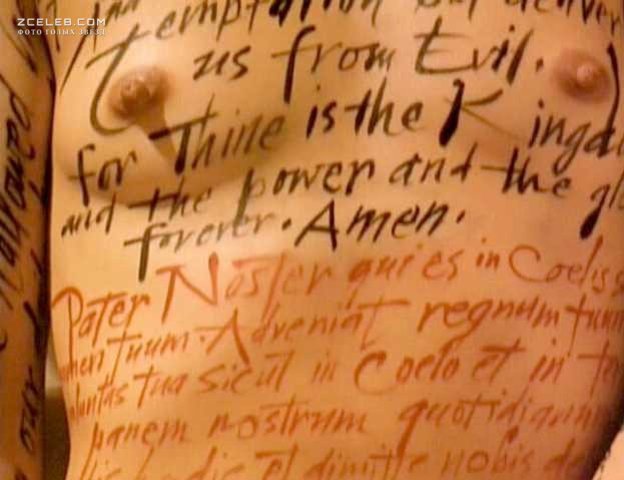 ZCELEB.COM
ФОТО ГОЛЫХ ЗВЕЗД
temptation but deliver
us from Evil.
for Thine is the Kingd
and the power and the gl
forever. Amen.
Pater Noster qui es in Coelis s
nomen tuum. Adveniat regnum tuum
voluntas tua sicut in Coelo et in te
panem nostrum quotidianum
hodie et dimitte nobis de